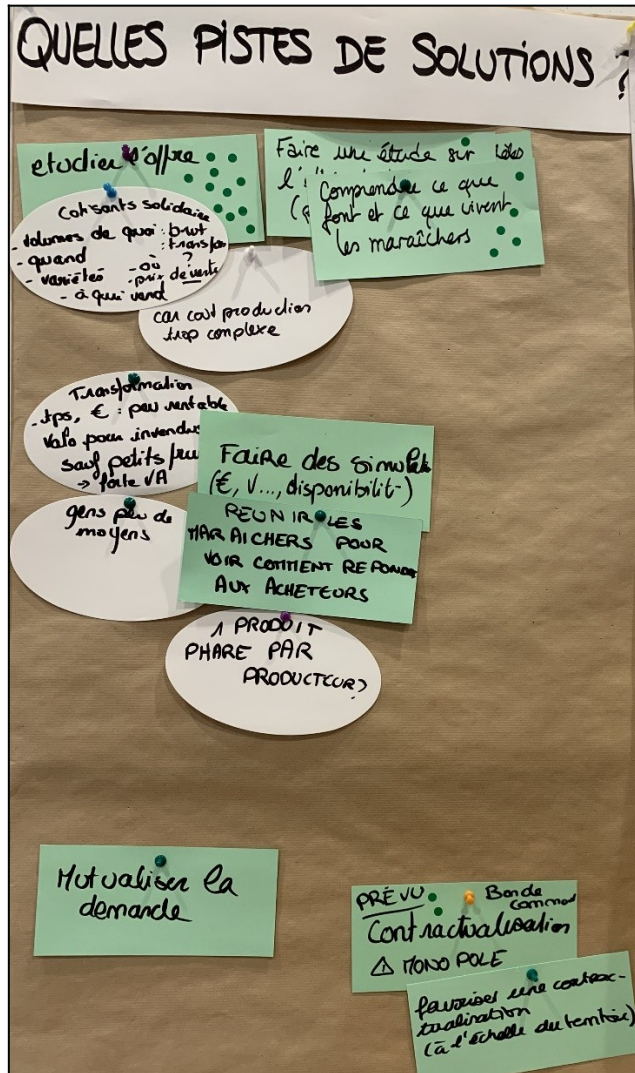 QUELLES PISTES DE SOLUTIONS ?
etudier l'offre
Cotisants solidaire
- volumes de quoi : brut
: transfo
- quand ?
- variétés - où
- prix de vente
- à qui vend
Faire une étude sur
l'
Comprendre ce que
font et ce que vivent
les maraîchers
car cout production
trop complexe
Transformation
- tps, € : peu rentable
Valo pour invendus
sauf petits
→ forte VA
gens peu de
moyens
Faire des
(€, V..., disponibilit-)
REUNIR LES
MARAICHERS POUR
VOIR COMMENT REPONDRE
AUX ACHETEURS
1 PRODUIT
PHARE PAR
PRODUCTEUR?
Mutualiser la
demande
PRÉVU
Bon de
Contractualisation
⚠ MONOPOLE
favoriser une contrac-
tualisation
(à l'échelle du territoire)